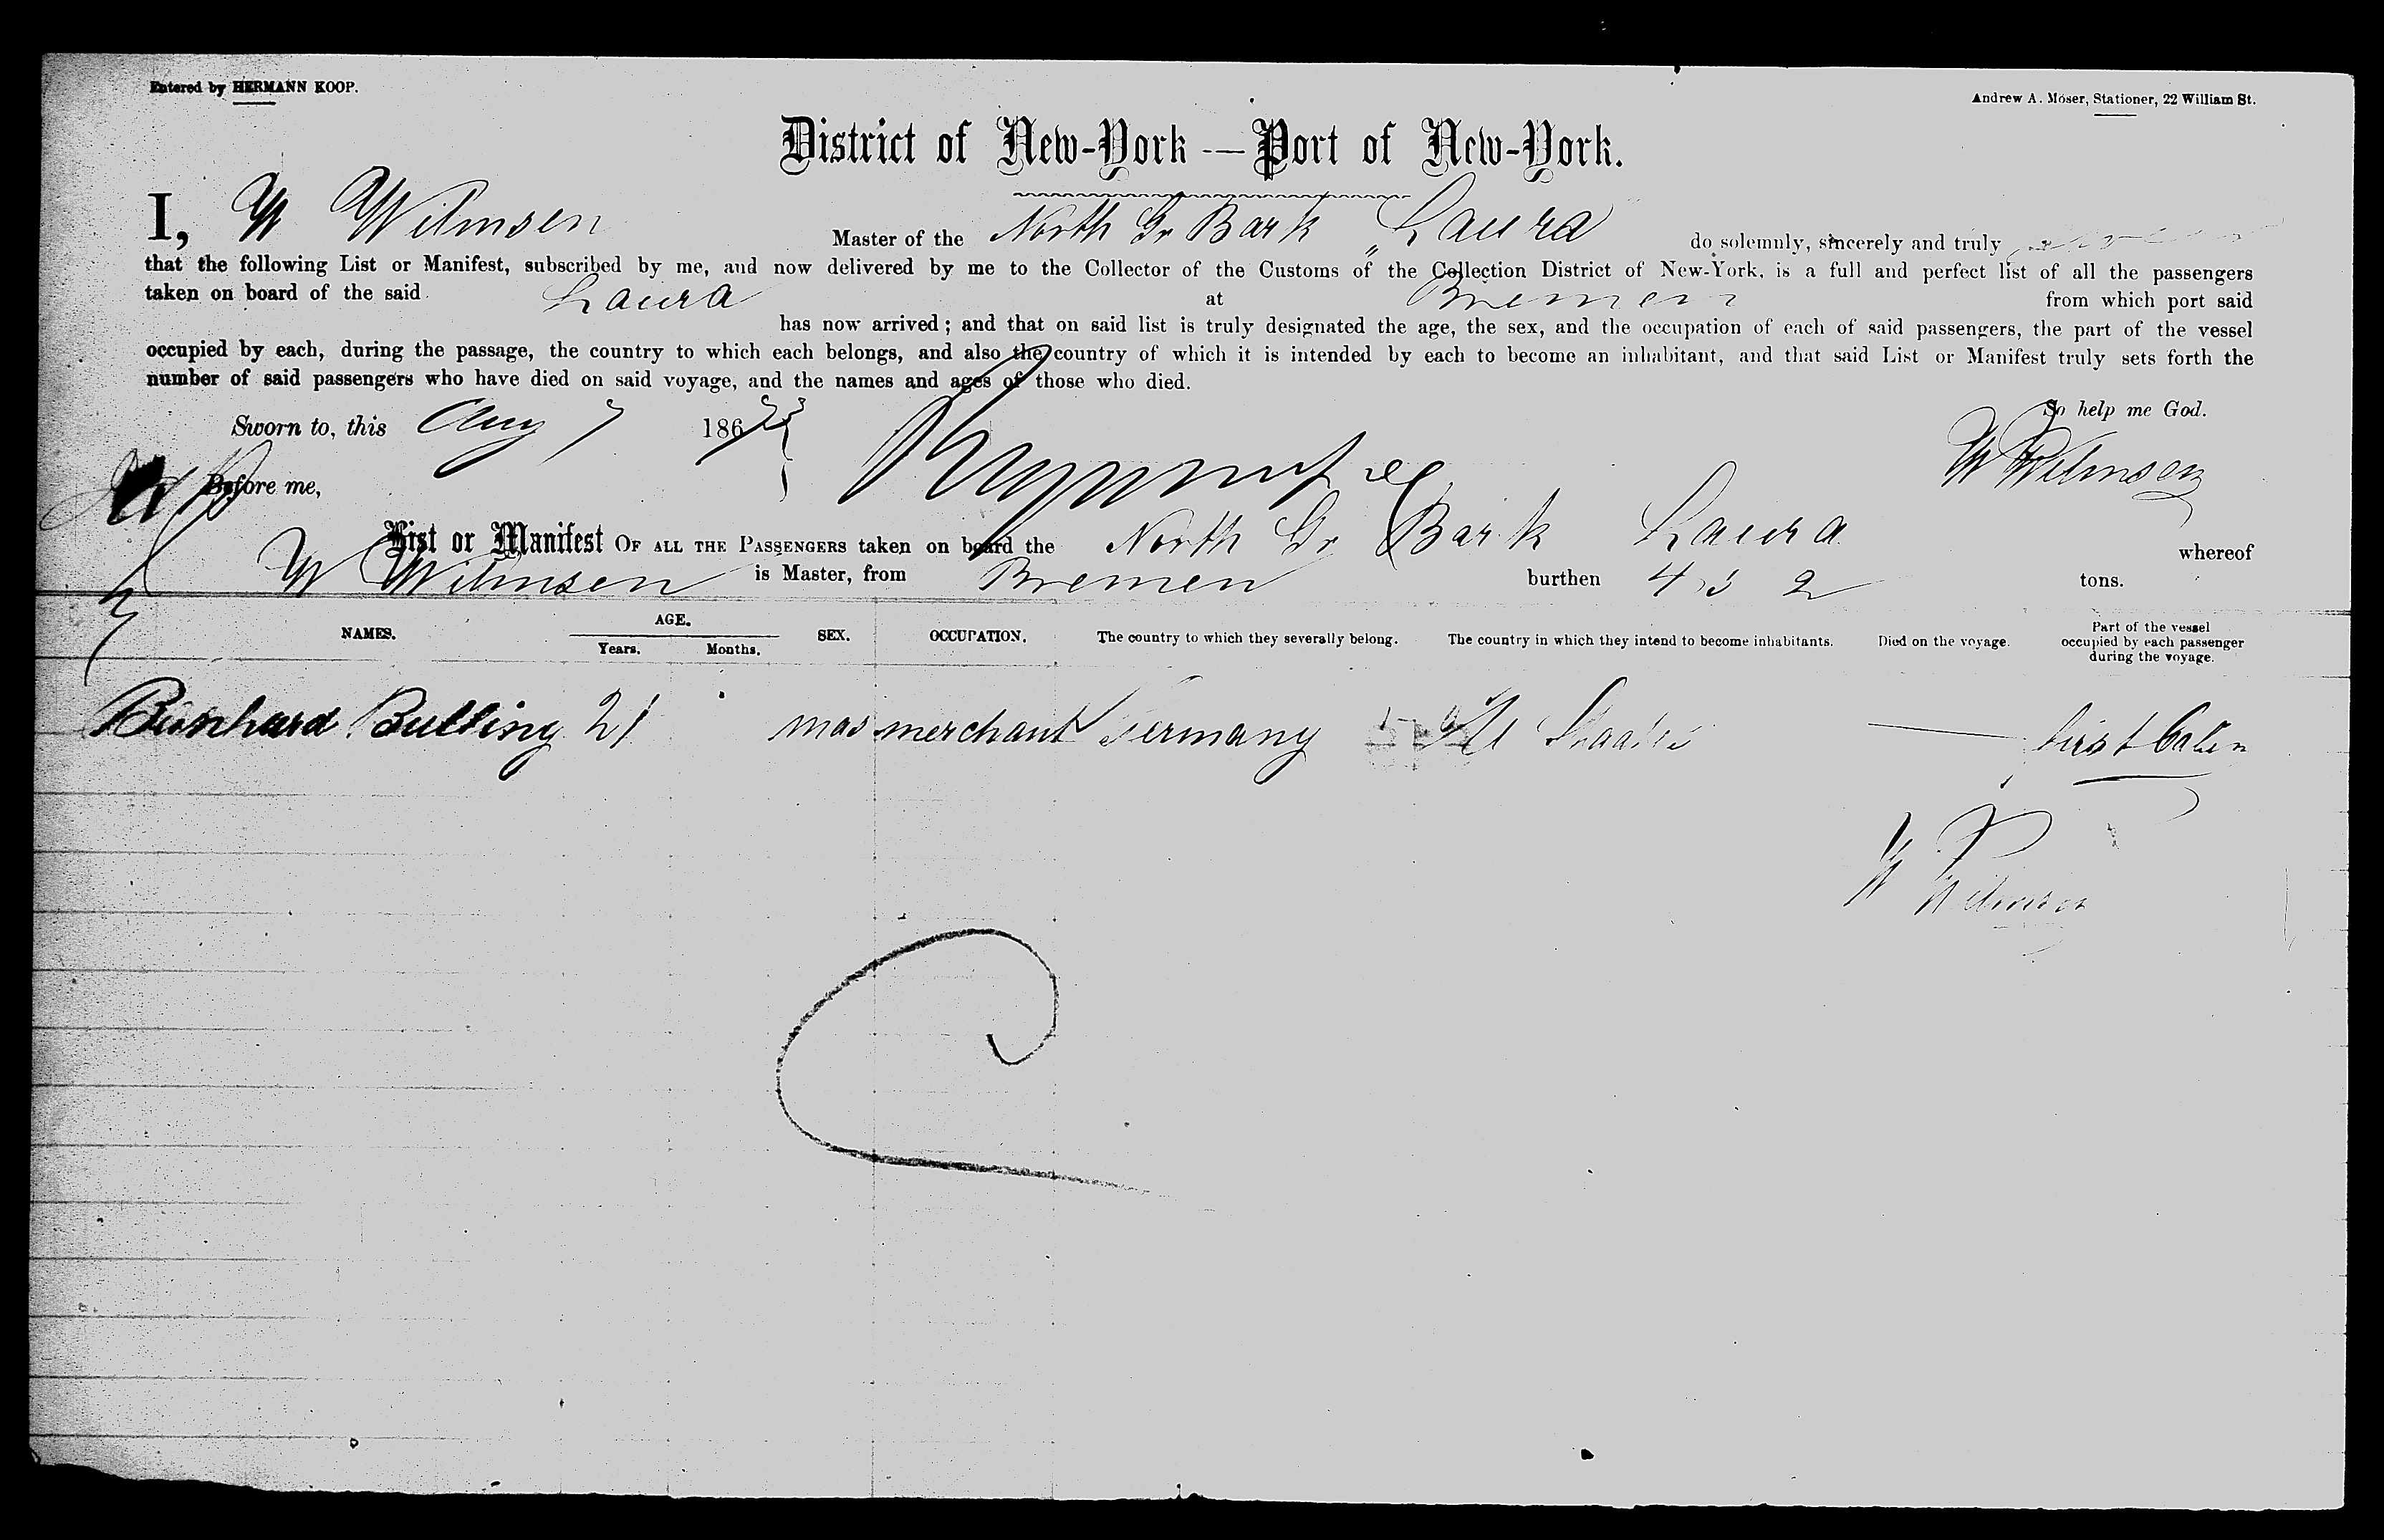 Entered by HERMANN KOOP.
Andrew A. Moser, Stationer, 22 William St.
District of New-York — Port of New-York.
I, W Wilmsen Master of the North Gr Bark „Laura" do solemnly, sincerely and truly
that the following List or Manifest, subscribed by me, and now delivered by me to the Collector of the Customs of the Collection District of New-York, is a full and perfect list of all the passengers
taken on board of the said Laura at Bremen from which port said
has now arrived; and that on said list is truly designated the age, the sex, and the occupation of each of said passengers, the part of the vessel
occupied by each, during the passage, the country to which each belongs, and also the country of which it is intended by each to become an inhabitant, and that said List or Manifest truly sets forth the
number of said passengers who have died on said voyage, and the names and ages of those who died.
So help me God.
Sworn to, this Aug 7 186
W Wilmsen
Before me,
List or Manifest OF ALL THE PASSENGERS taken on board the North Gr Bark Laura whereof
W Wilmsen is Master, from Bremen burthen tons.
NAMES. AGE. Years. Months. SEX. OCCUPATION. The country to which they severally belong. The country in which they intend to become inhabitants. Died on the voyage. Part of the vessel occupied by each passenger during the voyage.
Bernhard Bulling 21 mas merchant Germany — first Cabin
W Wilmsen